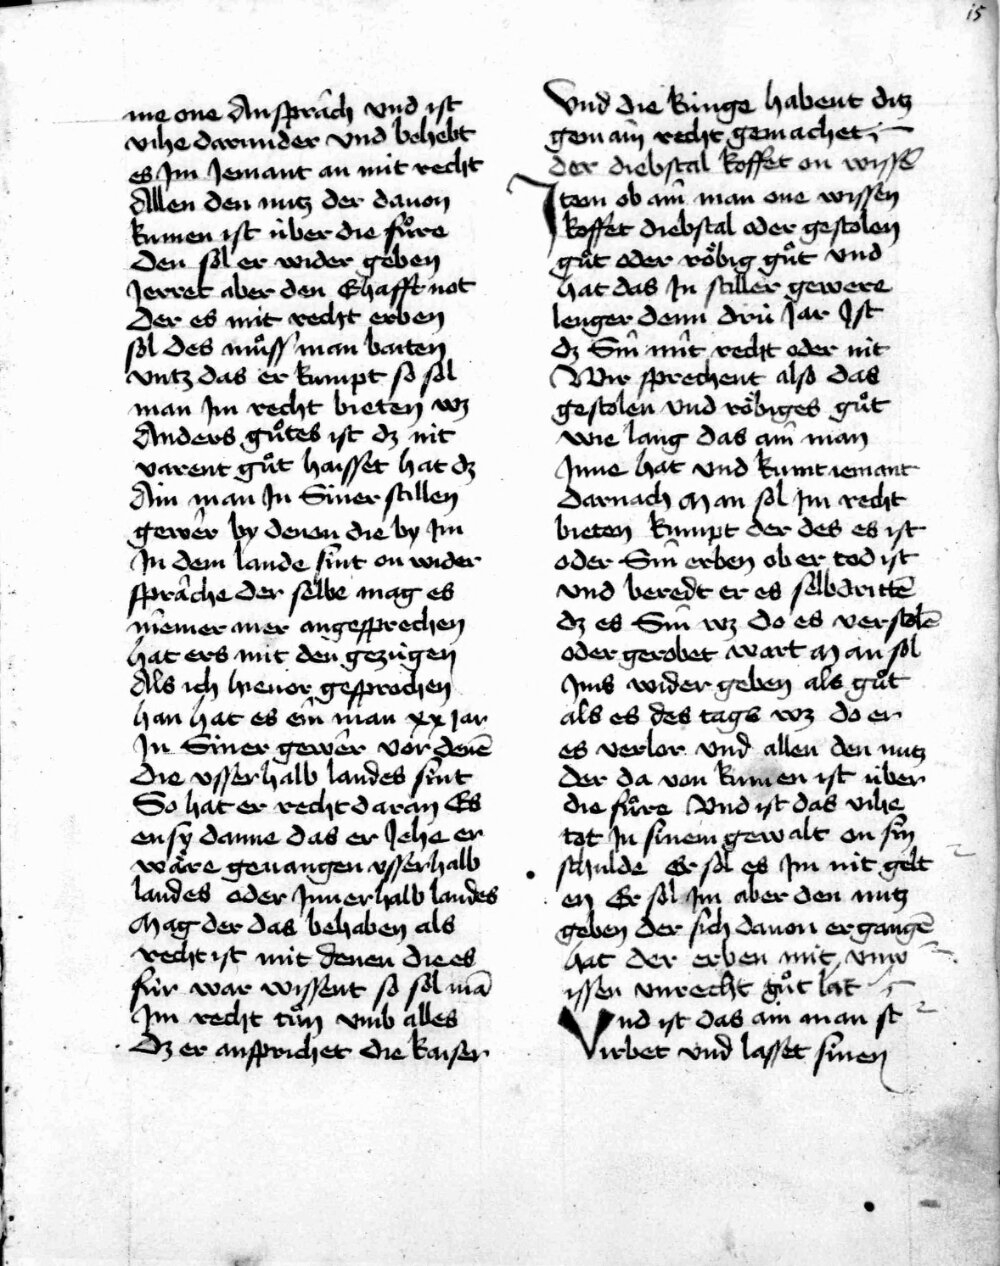 15
me one Ansprâch vnd ist
vihe darunder vnd behebt
es Jm Jemant an mit recht
Allen den nutz der dauon
kumen ist über die fůre
den sol er wider geben
Jerret aber den Ehafft not
der es mit recht erben
sol des můss man baiten
vntz das er kumpt so sol
man Jm recht bieten wz
Anders gůtes ist dz nit
varent gůt haisset hat dz
Ain man Jn Siner stillen
gewêr by denen die by Jm
Jn dem lande sint on wider
sprâche der selbe mag es
niemer mer angesprechen
hat ers mit den gezügen
Als ich hieuor gesprochen
han hat es ein man xx jar
Jn Siner gewêr vor denē
die vsserhalb landes sint
So hat er recht daran Es
ensy danne das er Jehe er
wåre geuangen vsserhalb
landes oder Jnnerhalb landes
Mag der das behaben als
recht ist mit denen die es
für war wissent so sol mā
Jm recht tůn vmb alles
dz er ansprichet die kaiser
Vnd die künge habent ditz
gemain recht gemachet
der diebstal koffet on wissē
Jtem ob ain man one wissen
koffet diebstal oder gestolen
gůt oder röbig gůt vnd
hat das Jn stiller gewere
lenger denn drü Jar Jst
dz Sin mit recht oder nit
Wir sprechent also das
gestolen vnd röbiges gůt
wie lang das ain man
Jnne hat vnd kumt iemant
darnach Man sol Jm recht
bieten kumpt der des es ist
oder Sin erben ob er tod ist
vnd beredt er es selbdrittē
dz es Sin wz do es verstolē
oder gerobet wart Man sol
Jms wider geben als gůt
als es des tags wz do er
es verlor vnd allen den nutz
der da von kumen ist über
die fůre Vnd ist das vihe
tot Jn sinem gewalt on sin
schulde Er sol es Jm nit gelt
en Er sol Jm aber den nutz
geben der sich dauon ergangē
hat der erben mit vnw
issen vnrecht gůt lât
Vnd ist das ain man st
irbet vnd lasset sinen